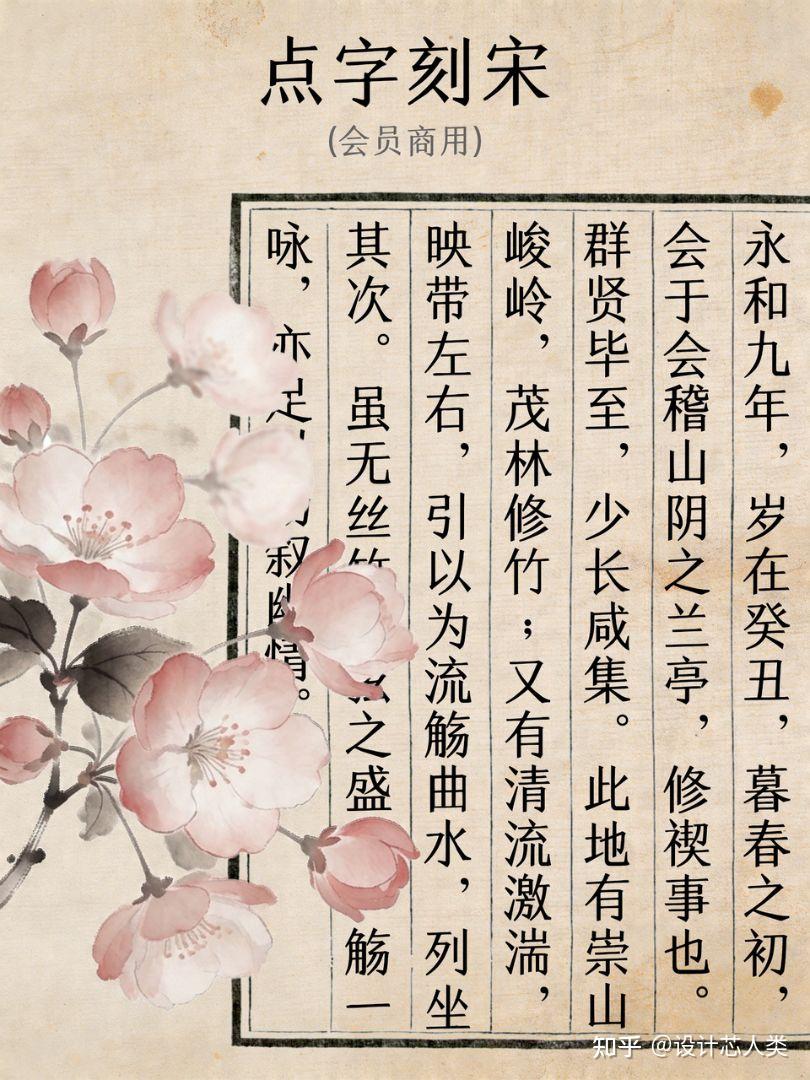 点字刻宋
(会员商用)
永和九年，岁在癸丑，暮春之初，
会于会稽山阴之兰亭，修禊事也。
群贤毕至，少长咸集。此地有崇山
峻岭，茂林修竹；又有清流激湍，
映带左右，引以为流觞曲水，列坐
其次。虽无丝竹弦之盛觞一
咏，亦足叙幽情。
知乎 @设计芯人类